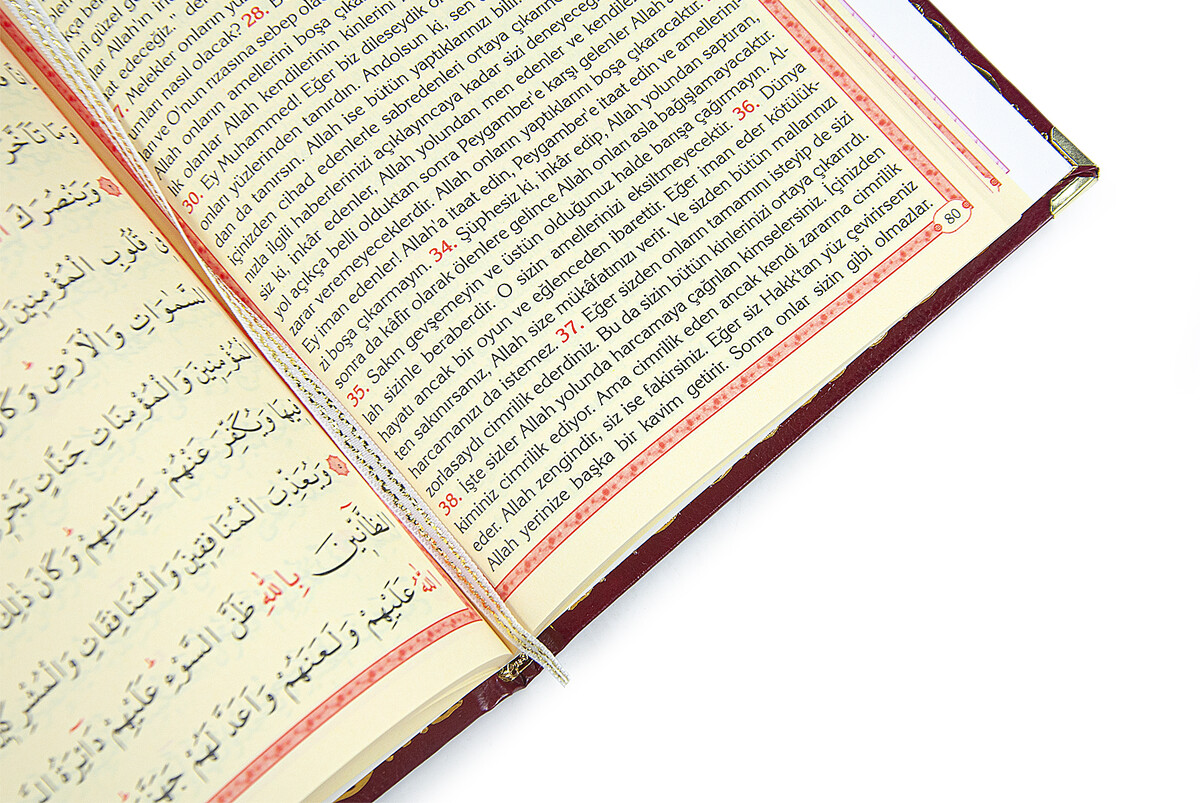 ni güzel
Allah'ın
at edeceğiz.,,
Melekler onların
nasıl olacak? 28.
ve O'nun rızasına sebep
Allah onların amellerini boşa
lik olanlar Allah kendilerinin kinlerini
30. Ey Muhammed! Eğer biz dileseydik
onları yüzlerinden tanırdın. Andolsun ki, sen
dan da tanırsın. Allah ise bütün yaptıklarınızı
içinizden cihad edenlerle sabredenleri ortaya
nızla ilgili haberlerinizi açıklayıncaya kadar sizi
siz ki, inkâr edenler, Allah yolundan men edenler ve
yol açıkça belli olduktan sonra Peygamber'e karşı gelenler
zarar veremeyeceklerdir. Allah onların yaptıklarını boşa çıkaracaktır.
Ey iman edenler! Allah'a itaat edin, Peygamber'e itaat edin ve amellerini-
zi boşa çıkarmayın. 34. Şüphesiz ki, inkâr edip, Allah yolundan saptıran,
sonra da kâfir olarak ölenlere gelince Allah onları asla bağışlamayacaktır.
35. Sakın gevşemeyin ve üstün olduğunuz halde barışa çağırmayın. Al-
lah sizinle beraberdir. O sizin amellerinizi eksiltmeyecektir. 36. Dünya
hayatı ancak bir oyun ve eğlenceden ibarettir. Eğer iman eder kötülük-
ten sakınırsanız, Allah size mükâfatınızı verir. Ve sizden bütün mallarınızı
harcamanızı da istemez. 37. Eğer sizden onların tamamını isteyip de sizi
zorlasaydı cimrilik ederdiniz. Bu da sizin bütün kinlerinizi ortaya çıkarırdı.
38. İşte sizler Allah yolunda harcamaya çağrılan kimselersiniz. İçinizden
kiminiz cimrilik ediyor. Ama cimrilik eden ancak kendi zararına cimrilik
eder. Allah zengindir, siz ise fakirsiniz. Eğer siz Hakk'tan yüz çevirirseniz
Allah yerinize başka bir kavim getirir. Sonra onlar sizin gibi olmazlar.
80
تَأَخَّرَ
وَيَنْصُرَكَ
قُلُوبِ الْمُؤْمِنِينَ
السَّمٰوَاتِ وَالْاَرْضِ وَكَانَ
الْمُؤْمِنِينَ وَالْمُؤْمِنَاتِ جَنَّاتٍ
فِيهَا وَيُكَفِّرَ عَنْهُمْ سَيِّئَاتِهِمْ وَكَانَ ذٰلِكَ
وَيُعَذِّبَ الْمُنَافِقِينَ وَالْمُنَافِقَاتِ
الظَّآنِّينَ بِاللّٰهِ ظَنَّ السَّوْءِ عَلَيْهِمْ دَآئِرَةُ
اللّٰهُ عَلَيْهِمْ وَلَعَنَهُمْ وَاَعَدَّ لَهُمْ